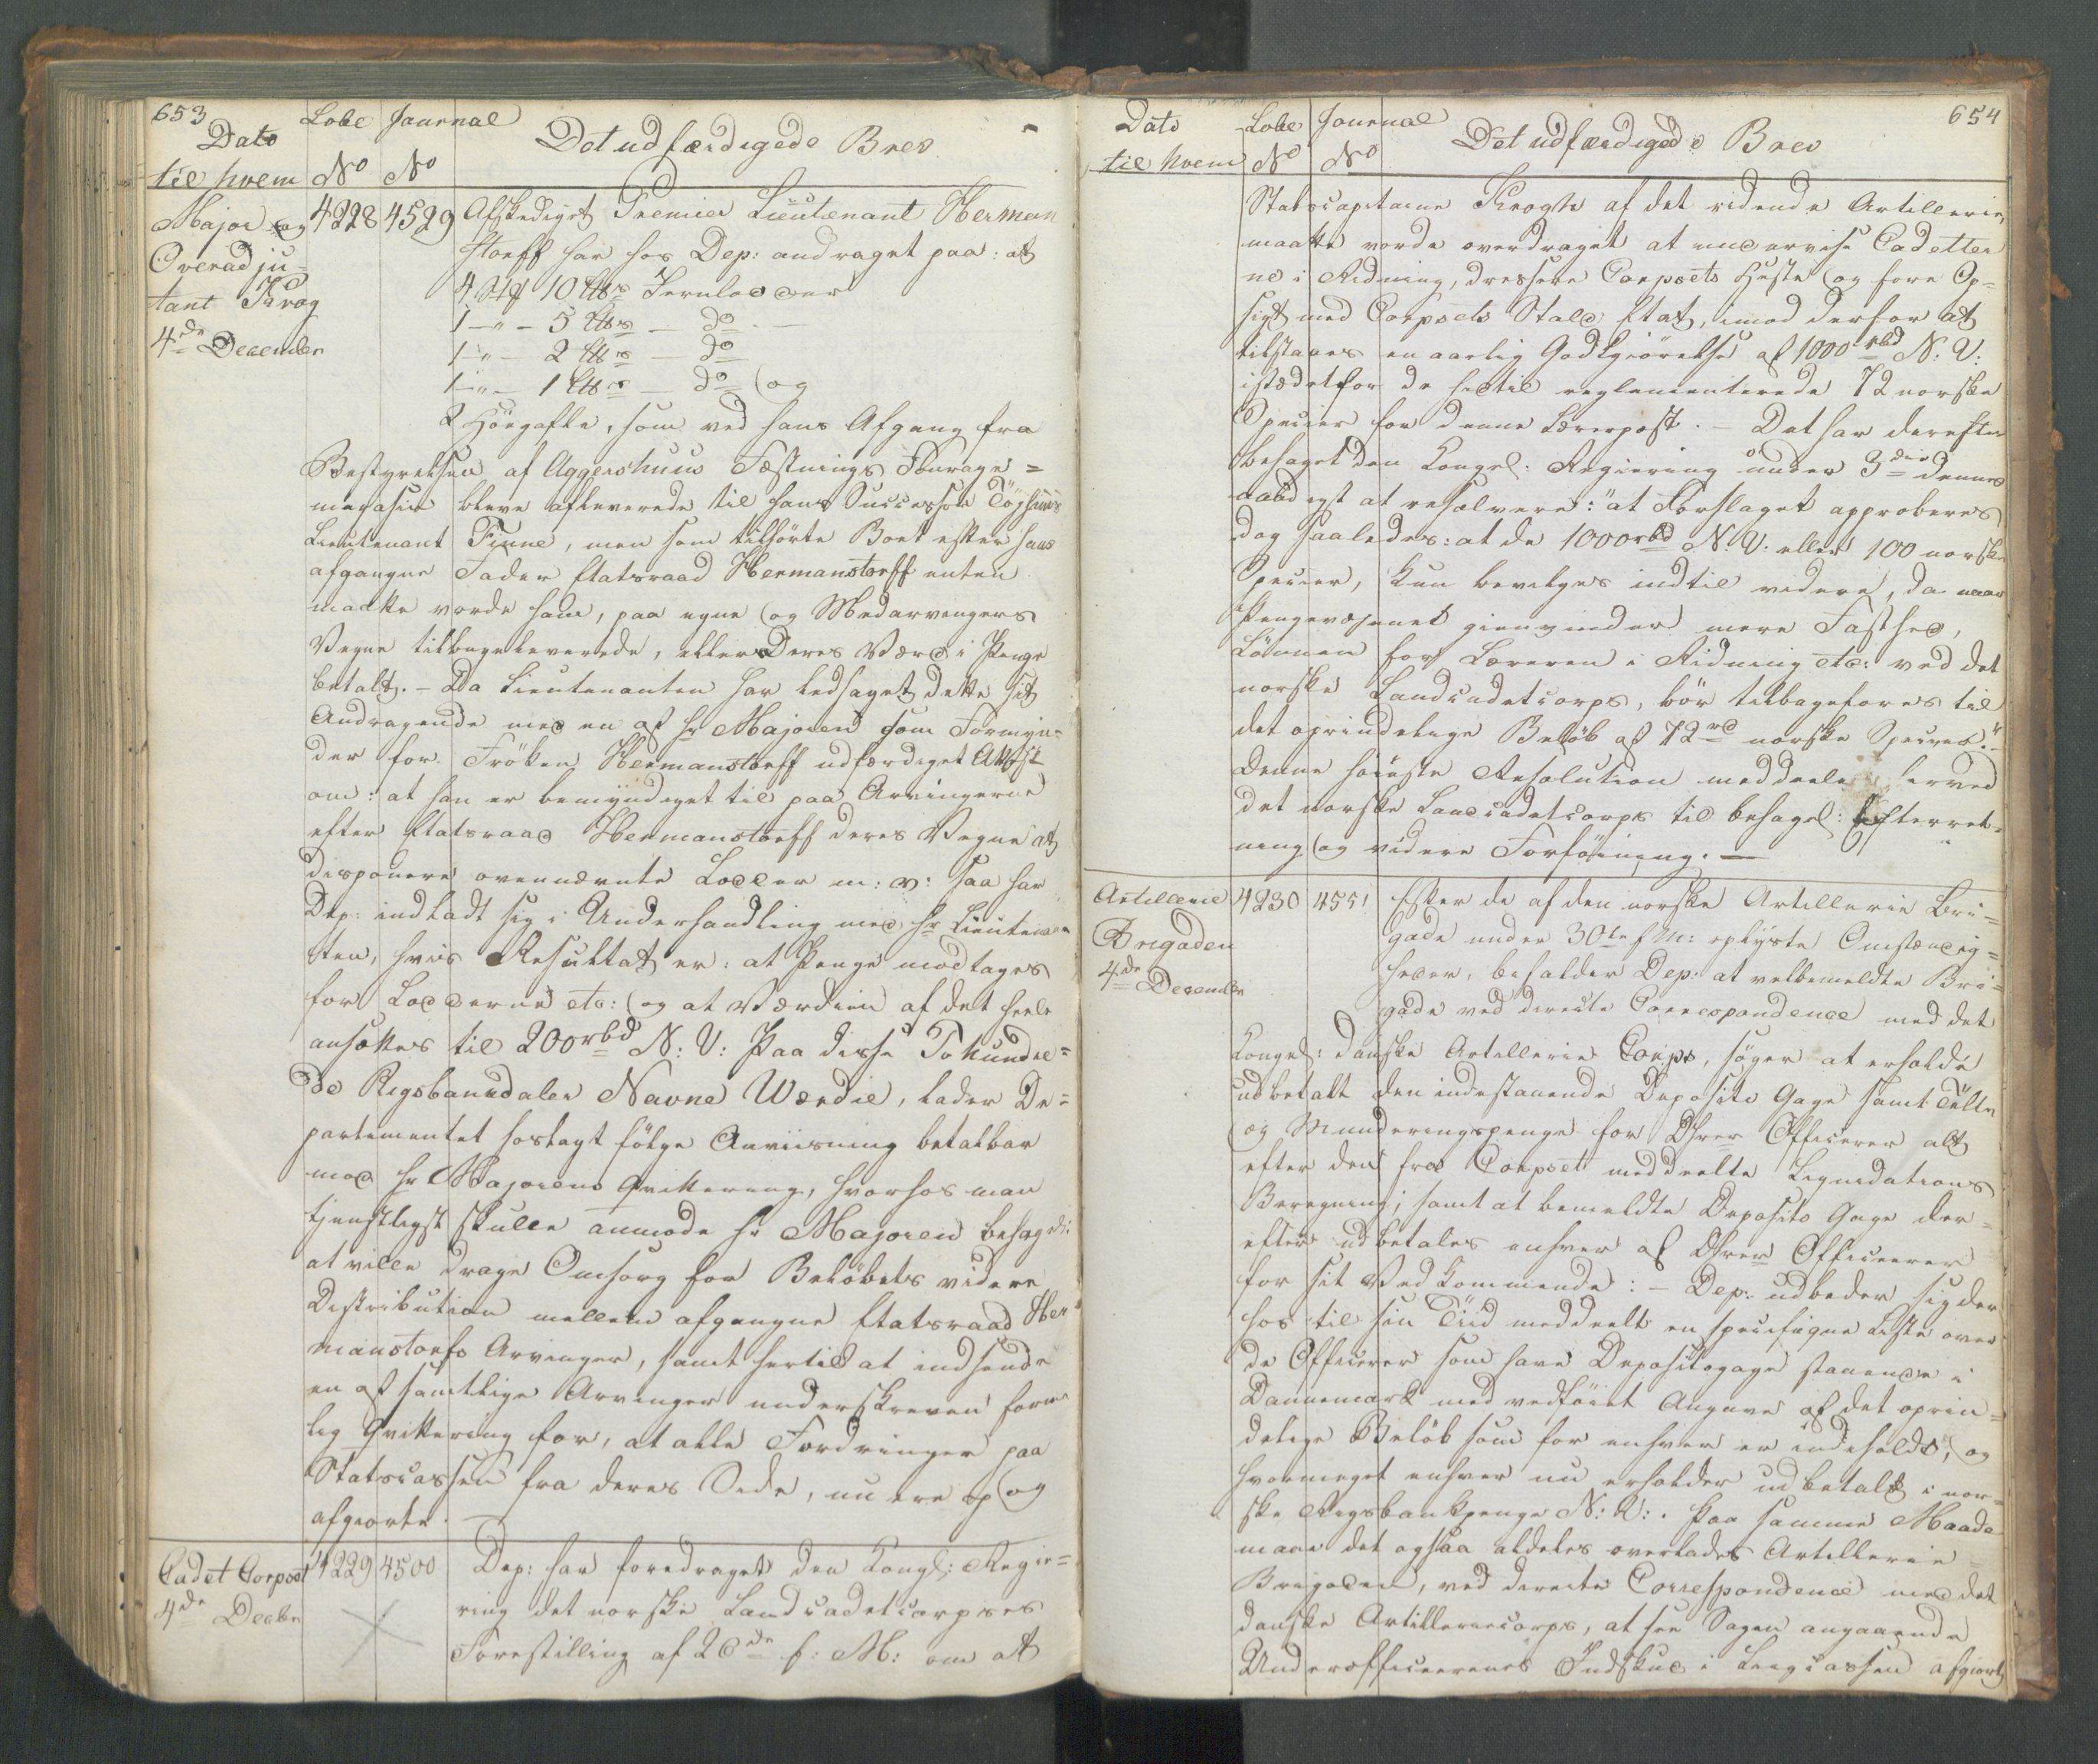 653
Dato Løbe Journal Det udfærdigede Brev
til hvem No No
Major og 4228 4529 Afskediget Premier Lieutenant Herman
Overadju- storff har hos Dep: andraget paa: at
tant Krog 4 Stk 10 ℔s Jernlodder
4de December 1 -"- 5 ℔s - do -
1 -"- 2 ℔s - do
1 -"- 1 ℔s - do og
2 Høegafle, som ved hans Afgang fra
Bestyrelsen af Aggershuus Fæstnings Fourage=
magasin bleve afleverede til hans Successor Töjhuus
Lieutenant Finne, men som tilhörte Boet efter hans
afgangne Fader Etatsraad Hermanstorff enten
maatte vorde ham, paa egne og Medarvingers
Vegne tilbageleverede, eller Deres Værd i Penge
betalt. - Da Lieutenanten har ledsaget dette sit
Andragende med en af Hr Majoren som Formyn-
der for Fröken Hermanstorff udfærdiget Attest
om: at han er bemyndiget til paa Arvingerne
efter Etatsraad Hermanstorff deres Vegne at
disponere ovennævnte Lodder m: v: saa har
Dep: indladt sig i Underhandling med Hr Lieutenan
ten, hvis Resultat er: at Penge modtages
for Lodderne etc: og at Værdien af det heele
ansættes til 200 rbd N: V: Paa disse To hundre=
de Rigsbankdaler Navne Værdie, lader De=
partementet hoslagt fölge Anviisning betalbar
mod Hr Majorens Qvittering, hvorhos man
tjenstligst skulle anmode Hr Majoren behagel:
at ville drage Omsorg for Belöbets videre
Distribution mellem afgangne Etatsraad Her
manstorfs Arvinger, samt hertil at indsende
en af samtlige Arvinger underskreven form
lig Qvittering for, at alle Fordringer paa
Statscassen fra deres Side, nu ere op og
afgiorte. -
Cadet Corpset 4229 4500 Dep: har foredraget den Kongl: Regie=
4de Decbr ring det norske Landcadetcorpses
Forestilling af 26de f: M: om at
654
Dato Løbe Journal Det udfærdigede Brev
til hvem No No
Stabscapitaine Krogh af det ridende Artillerie,
maatte vorde overdraget at underviise Cadetter
ne i Ridning, dressere Corpsets Heste og føre Op-
sigt med Corpsets Stald Etat, imod derfor at
tilstaaes en aarlig Godtgiörelse af 1000 rbd N: V:
istædetfor de hertil reglementerede 72 norske
Specier for denne Lærerpost. - Det har derefter
behaget den Kongel: Regiering under 3die dennes
naadigst at resolvere: "at Forslaget approberes
dog saaledes: at de 1000 rbd N. V. eller 100 norske
Specier, kun bevilges indtil videre, da naar
Pengevæsenet gienvinder mere Fasthed,
Lönnen for Læreren i Ridning etc: ved det
norske Landcadetcorps, bör tilbageføres til
det oprindelige Belöb af 72 norske Specier." -
Denne höieste Resolution meddeeles herved
det norske Landcadetcorps til behagel: Efterret-
ning og videre Forföining. -
Artillerie 4230 4551 Efter de af den norske Artillerie Bri=
Brigaden gade under 30te f: M: oplyste Omstændig=
4de December heder, beholder Dep: at velbemeldte Bri=
gade ved directe Correspondence med det
Kongel: danske Artillerie Corps, söger at erholde
udbetalt den indestaaende Deposito Gage samt Telte
og Munderingspenge for DHrer Officerer alt
efter den fra Corpset meddeelte Liqvidations
Beregning, samt at bemeldte Deposito Gage der=
efter udbetales enhver af DHrer Officerer
for sit Vedkommende: - Dep. udbeder sig der
hos til sin Tiid meddeelt en specifique Liste over
de Officerer som have Depositogage staaende i
Dannemark med vedföiet Angivn af det oprin=
delige Belöb som for enhver er indeholdt, og
hvormeget enhver nu erholder udbetalt i nor=
ske Rigsbankpenge N: V:. Paa samme Maade
maae det ogsaa aldeles overlades Artillerie
Brigaden, ved directe Correspondence med det
danske Artilleriecorps, at see Sagen angaaende
Underofficerernes Indskud i Liigcassen afgiort